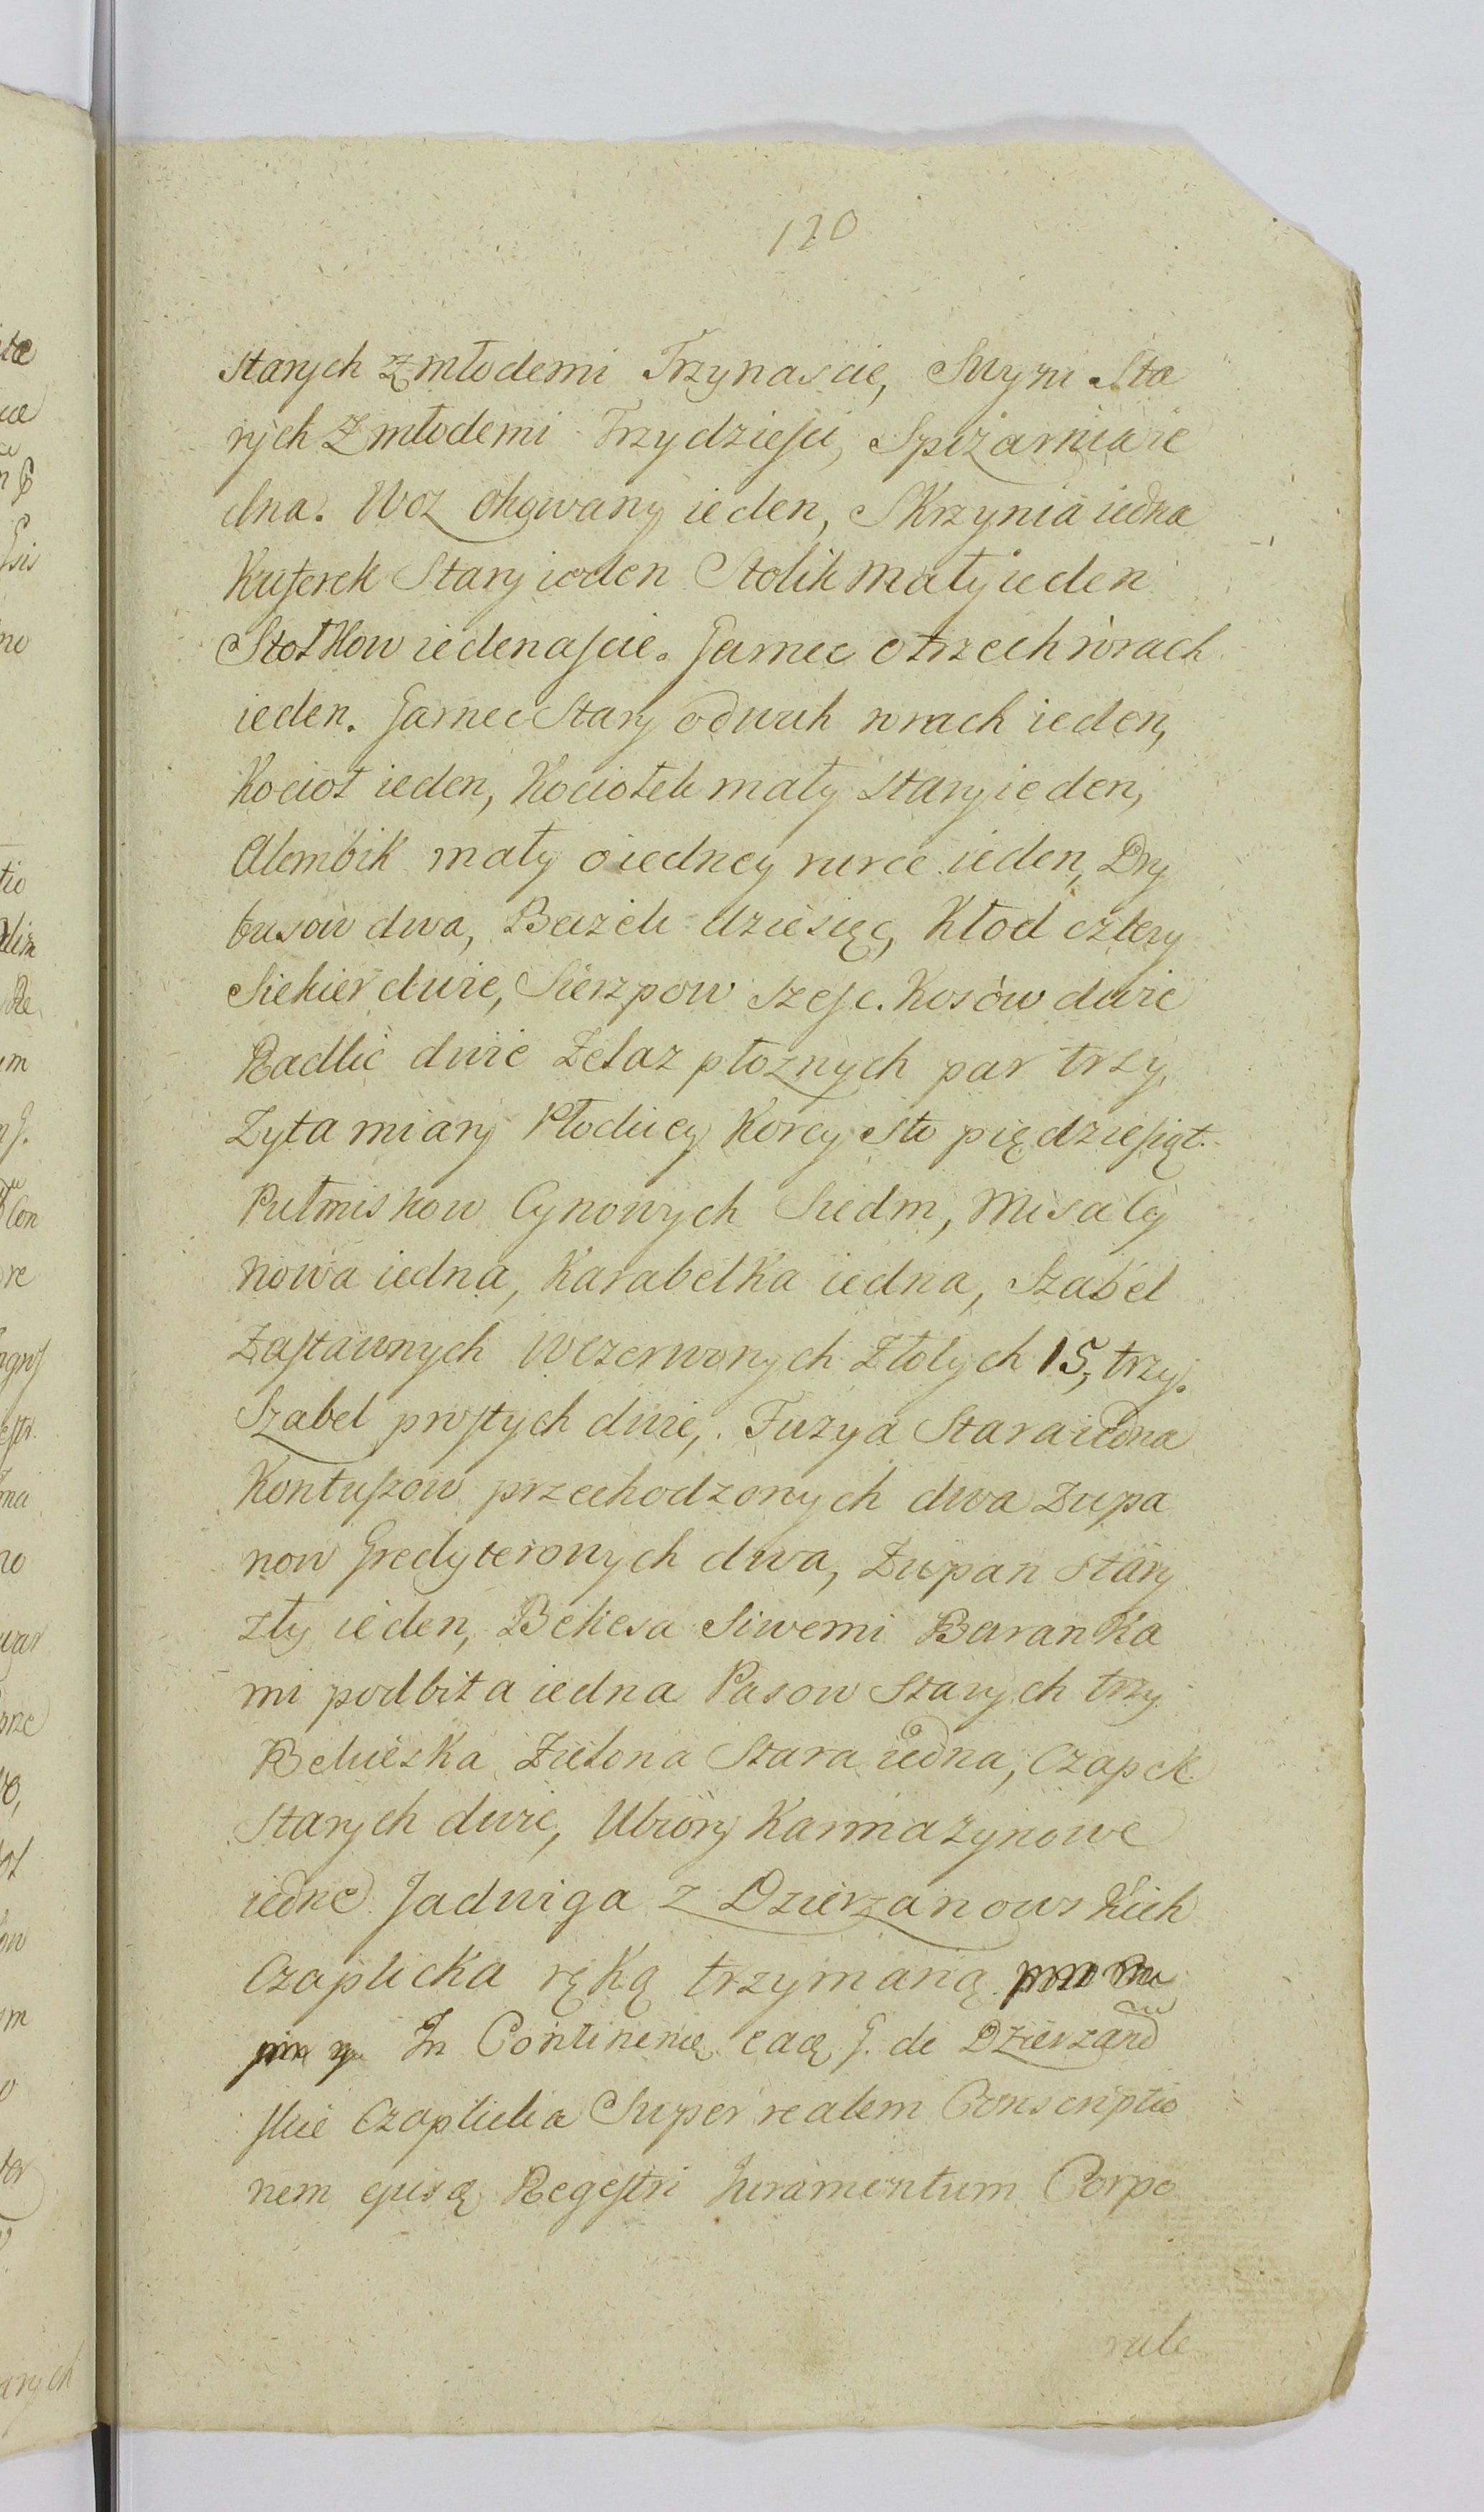 120
starych z młodemi Trzynascie, Swyni Sta
rych z młodemi Trzydzieści, Spizarnia ie
dna. Woz okowany ieden, Skrzynia iedna
Kuferek Stary ieden Stolik mały ieden
Stołkow iedenaście. Garnec o trzech rórach
ieden. Garnec Stary o dwuch rorach ieden,
Kocioł ieden, Kociołek mały stary ieden,
Alembik mały o iedney rurce ieden, Dry
busow dwa, Beczek dziesięc, Kłod cztery
Siekier dwie, Sierzpow szesc. Kosów dwie
Radlic dwie Zelaz płoznych par trzy,
Zyta miary Płockiey Korcy Sto pięćdziesiąt.
Pułmiskow Cynowych Siedm, Misa Cy
nowa iedna, Karabelka iedna, Szabel
Zastawnych w Czerwonych Złotych 15, trzy.
Szabel prostych dwie, Fuzya Stara iedna
Kontuszow przechodzonych dwa Zupa
now Gredyterowych dwa, Zupan stary
zły ieden, Bekesa Siwemi Baranka
mi podbita iedna Pasow Starych trzy
Bekieska Zielona Stara iedna, Czapek
Starych dwie, Ubiory Karmazynowe
iedne Jadwiga z Dzierzanowskich
Czaplicka ręką trzymaną
In Continenti eadę G. de Dzierzano
skie Czaplicka Super realem Conscriptio
nem ejusq Regestri Juramentum Corpo
rale